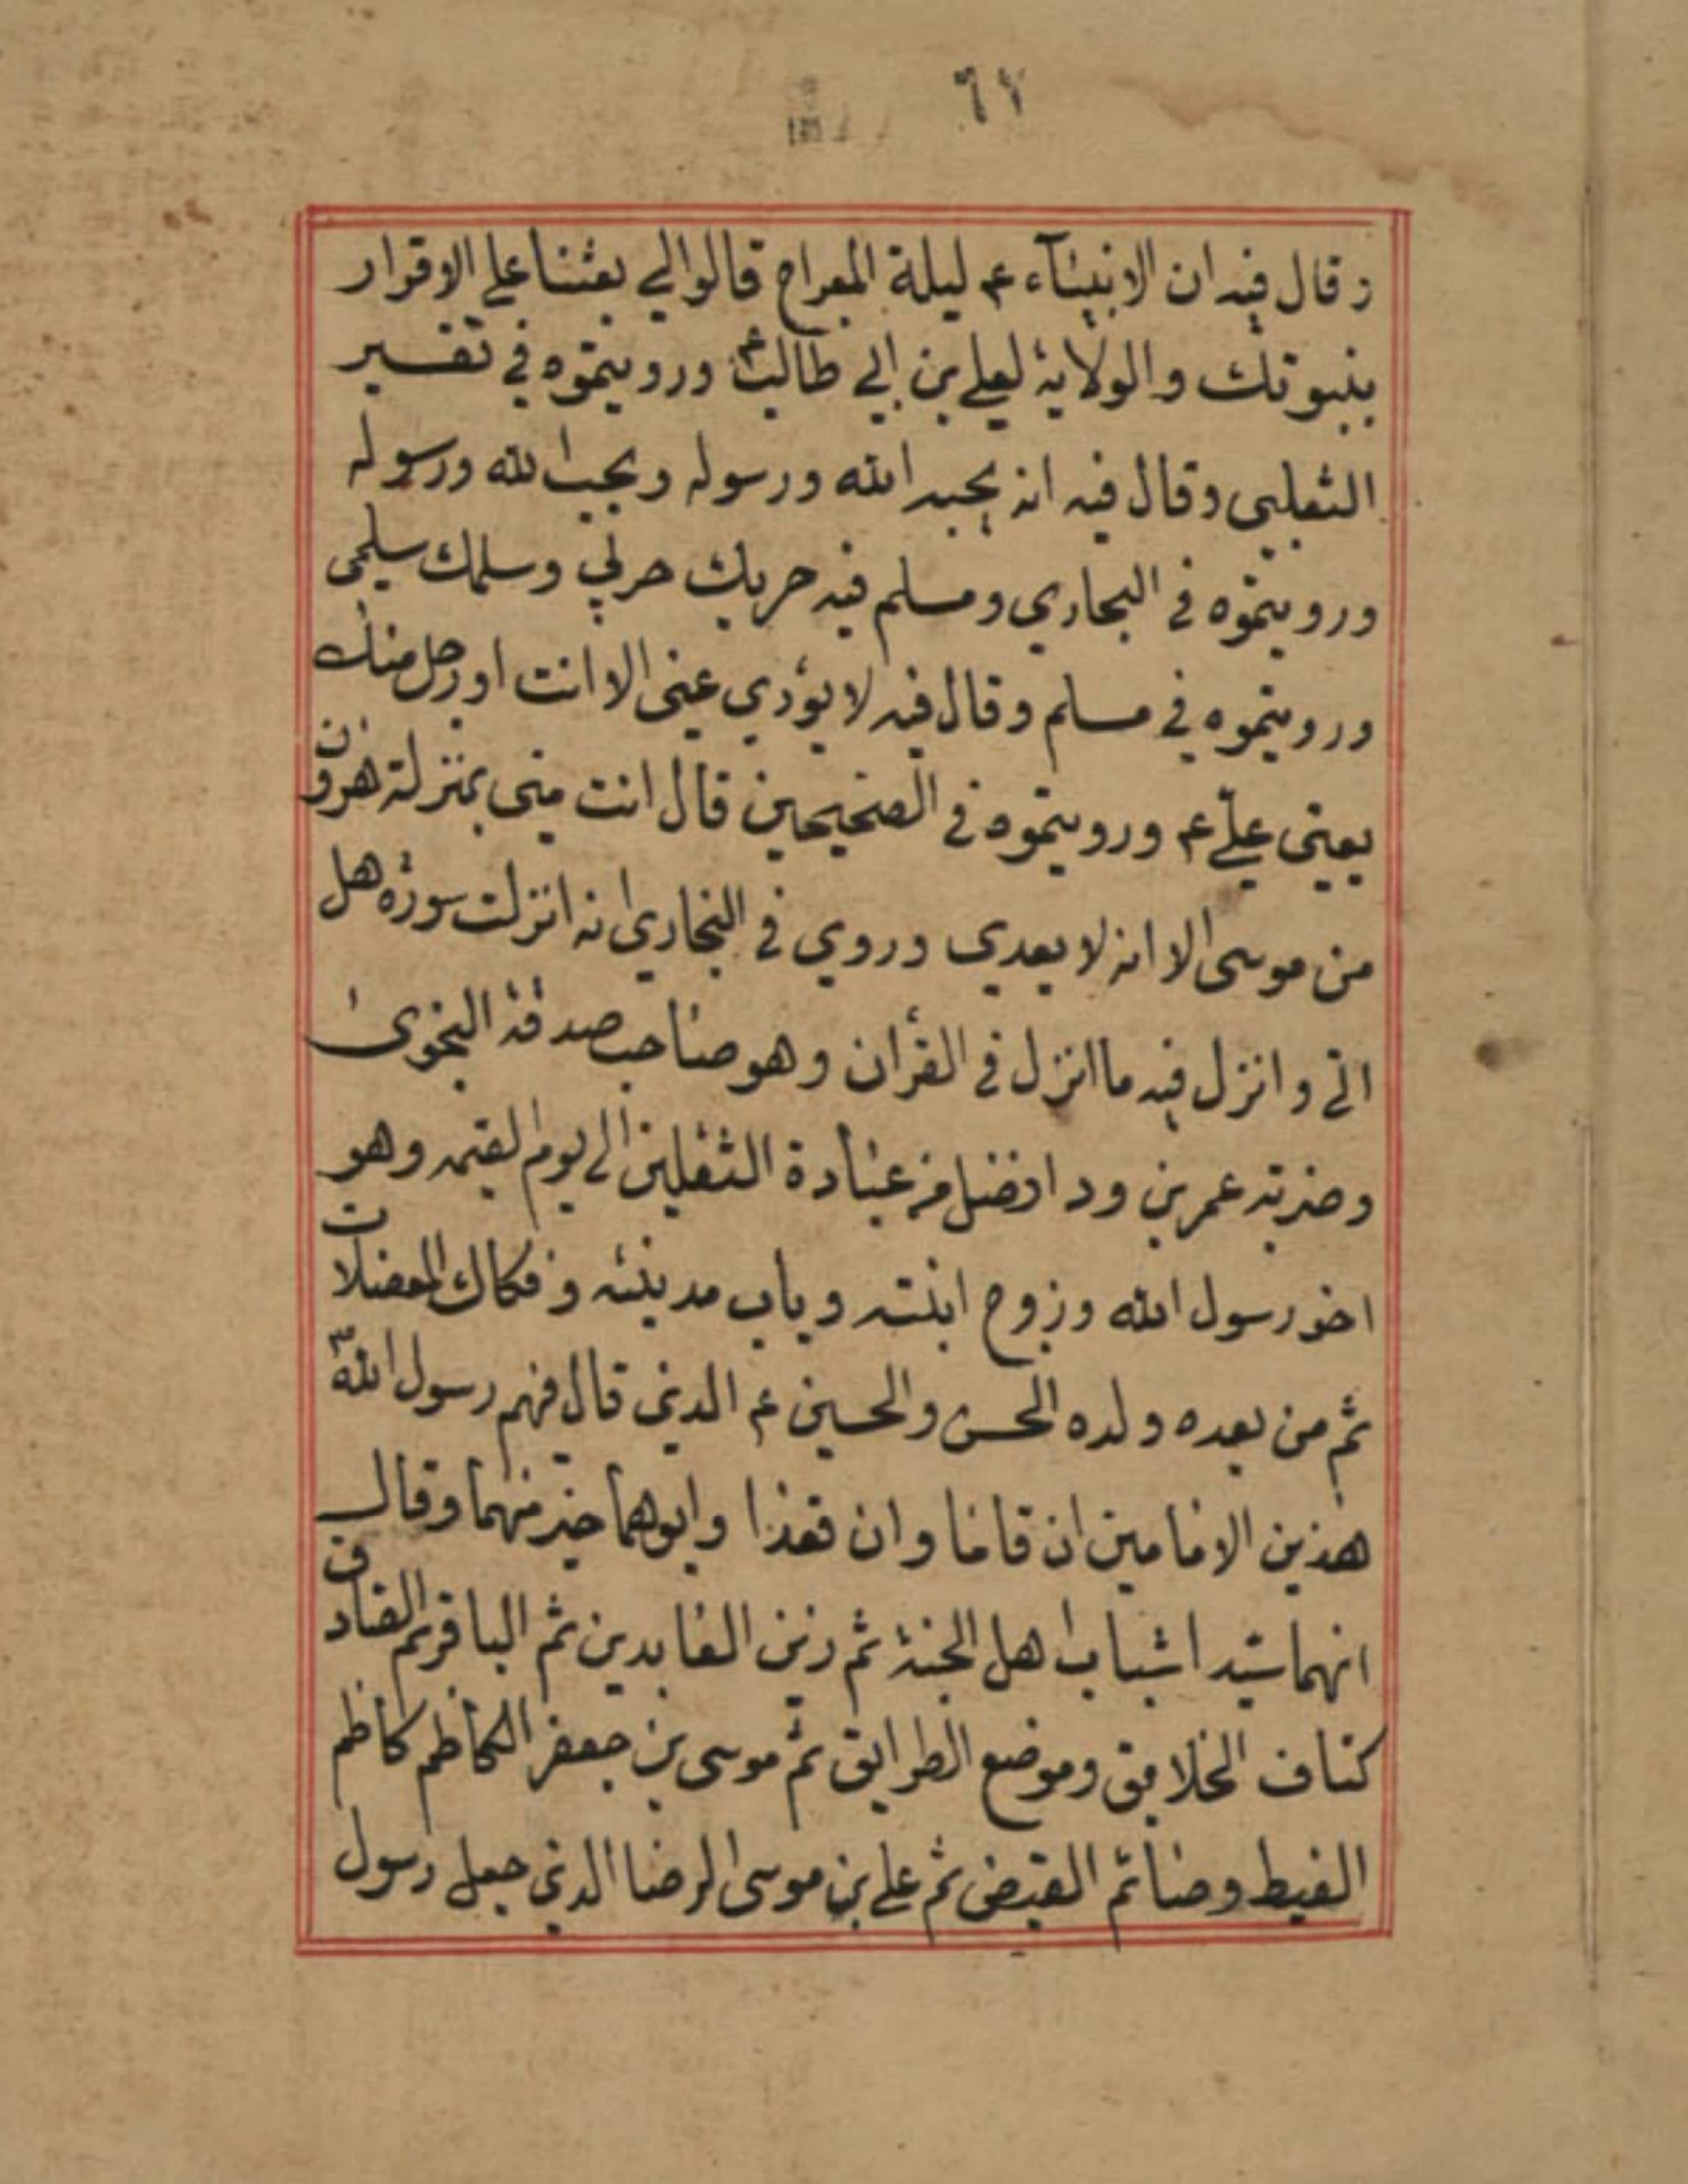 ٦٧
وقال فيه ان الانبيآء ع ليلة المعراج قالوا لي بعثنا على الاقرار
بنبوتك والولاية لعلي بن ابي طالب ع ورويتموه في تفسير
الثعلبي وقال فيه انه يحبه الله ورسوله ويحب الله ورسوله
ورويتموه في البخاري ومسلم فيه حربك حربي وسلمك سلمي
ورويتموه في مسلم وقال فيه لا يؤدي عني الا انت او رجل منك
يعني علي ع ورويتموه في الصحيحين قال انت مني بمنزلة هرون
من موسى الا انه لا بعدي وروي في البخاري انه انزلت سورة هل
اتى وانزل فيه ما انزل في القرأن وهو صاحب صدقة النجوى
وضربته عمر بن ود افضل من عبادة الثقلين الى يوم القيمه وهو
اخو رسول الله وزوج ابنته وباب مدينته وفكاك المعضلات
ثم من بعده ولده الحسن والحسين ع الذين قال فيهم رسول الله ص
هذين الامامين ان قاما وان قعدا وابوهما خير منهما وقال
انهما سيدا شباب اهل الجنة ثم زين العابدين ثم الباقر ثم الصادق
كشاف الخلايق وموضع الطرايق ثم موسى بن جعفر الكاظم كاظم
الغيط وصائم القيض ثم علي بن موسى الرضا الذي جعل رسول